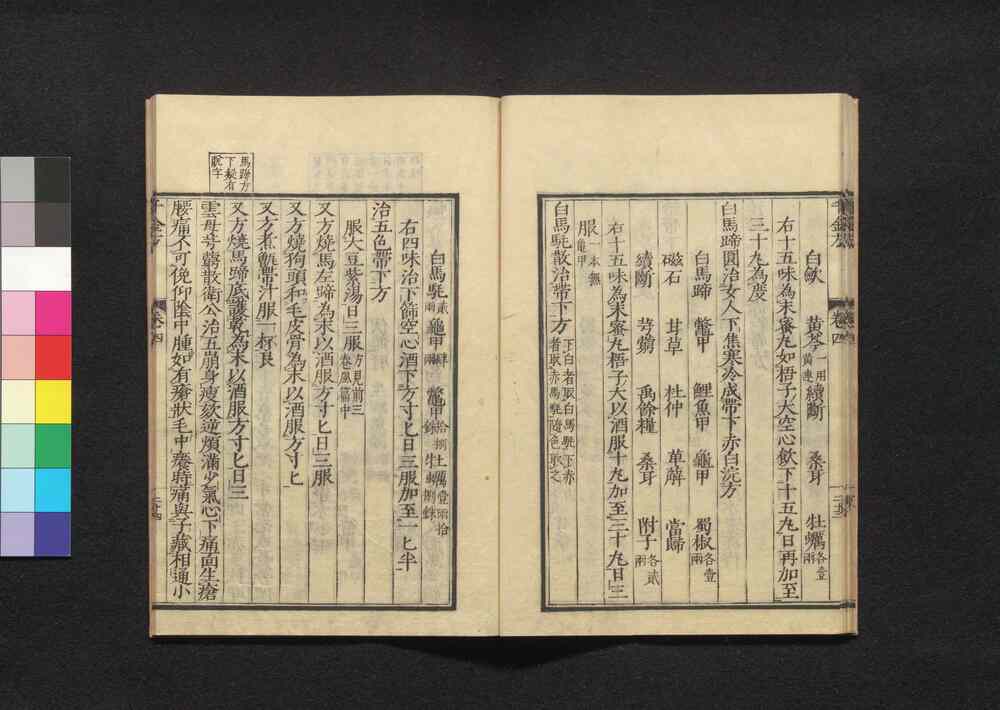 白歛 黃芩一用黃連 續斷 桑耳 牡蠣各壹兩
右十五味為末蜜丸如梧子大空心飲下十五丸日再加至
三十丸為度
白馬蹄圓治女人下焦寒冷成帶下赤白浣方
白馬蹄 鼈甲 鯉魚甲 龜甲 蜀椒各壹兩
磁石 甘草 杜仲 萆薢 當歸
續斷 芎藭 禹餘糧 桑耳 附子各貳兩
右十五味為末蜜丸梧子大以酒服十丸加至三十丸日三
服一本無龜甲
白馬駞散治帶下方下白者取白馬駞下赤者取赤馬駞隨色取之
馬蹄方下疑有脫字
白馬駞貳兩 龜甲肆兩 鼈甲拾捌銖 牡蠣壹兩拾捌銖
右四味治下篩空心酒下方寸匕日三服加至一匕半
治五色帶下方
服大豆紫湯日三服方見前三卷風篇中
又方燒馬左蹄為末以酒服方寸匕日三服
又方燒狗頭和毛皮骨為末以酒服方寸匕
又方煮甑帶汁服一杯良
又方燒馬蹄底護乾為末以酒服方寸匕日三
雲母芎藭散衛公治五崩身瘦欬逆煩滿少氣心下痛面生瘡
腰痛不可俛仰陰中腫如有瘡狀毛中癢時痛與子藏相通小
千金方 卷四